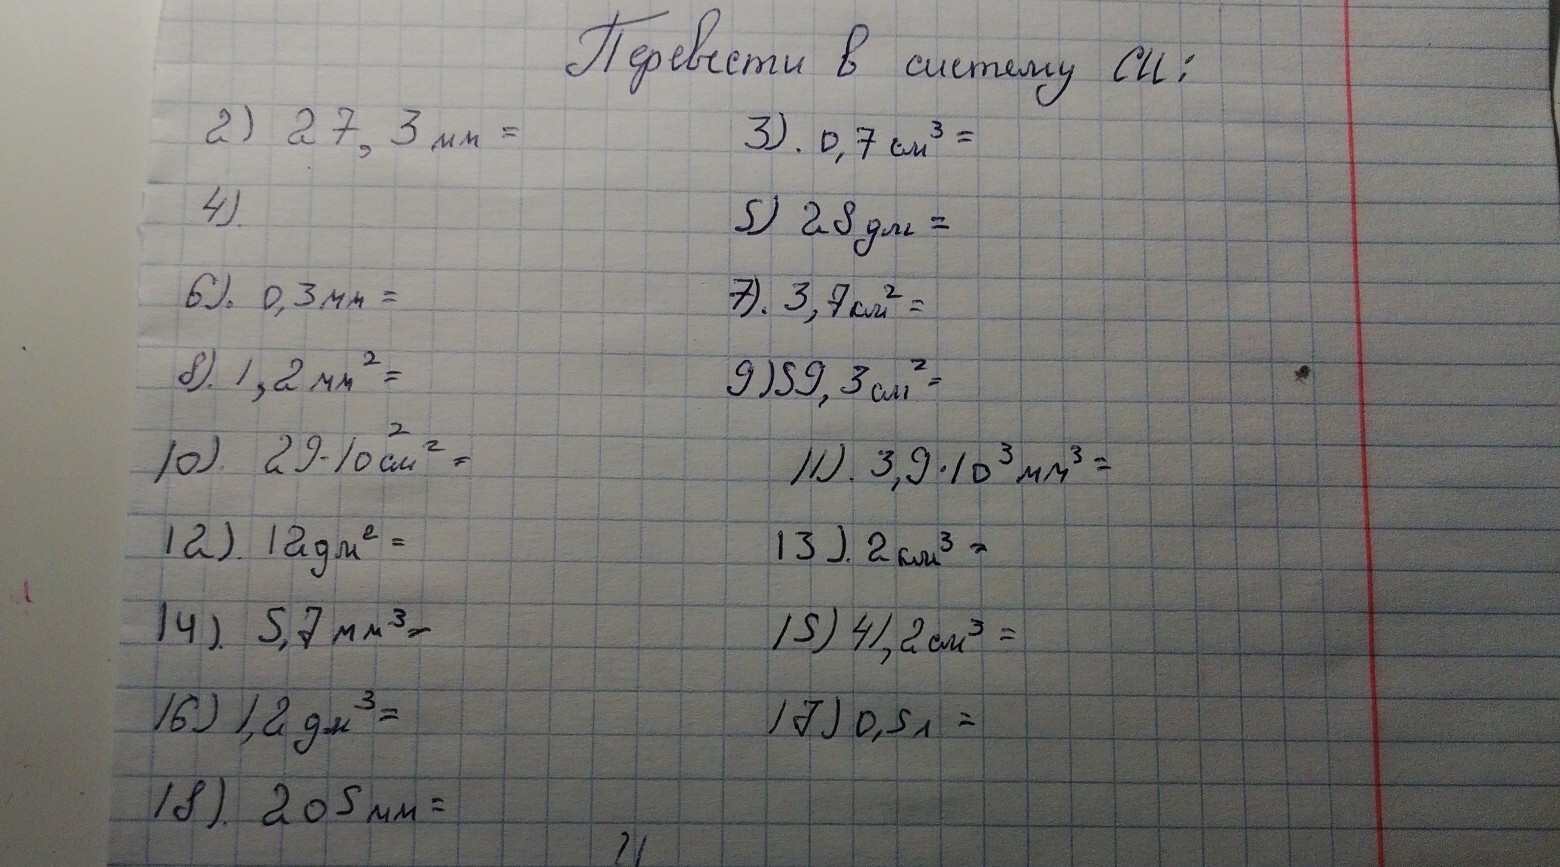 Перевести в систему СИ:
2) 27,3 мм = 3). 0,7 см³ =
4). 5) 28 дм =
6). 0,3 мм = 7). 3,7 км² =
8). 1,2 мм² = 9) 59,3 см² =
10). 29·10² см² = 11). 3,9·10³ мм³ =
12). 12 дм² = 13). 2 км³ =
14). 5,7 мм³ = 15) 41,2 см³ =
16) 1,2 дм³ = 17) 0,5 л =
18). 205 мм =